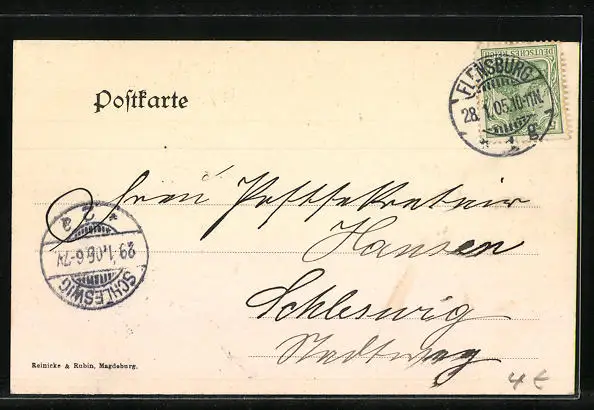 DEUTSCHES REICH
5
FLENSBURG
28.1.05.10-11N.
* 1 g
Postkarte
Frau Postsekretair
Hansen
Schleswig
Stadtweg
SCHLESWIG
29.1.05.6-7V.
* 2 a
Reinicke & Rubin, Magdeburg.
4 €